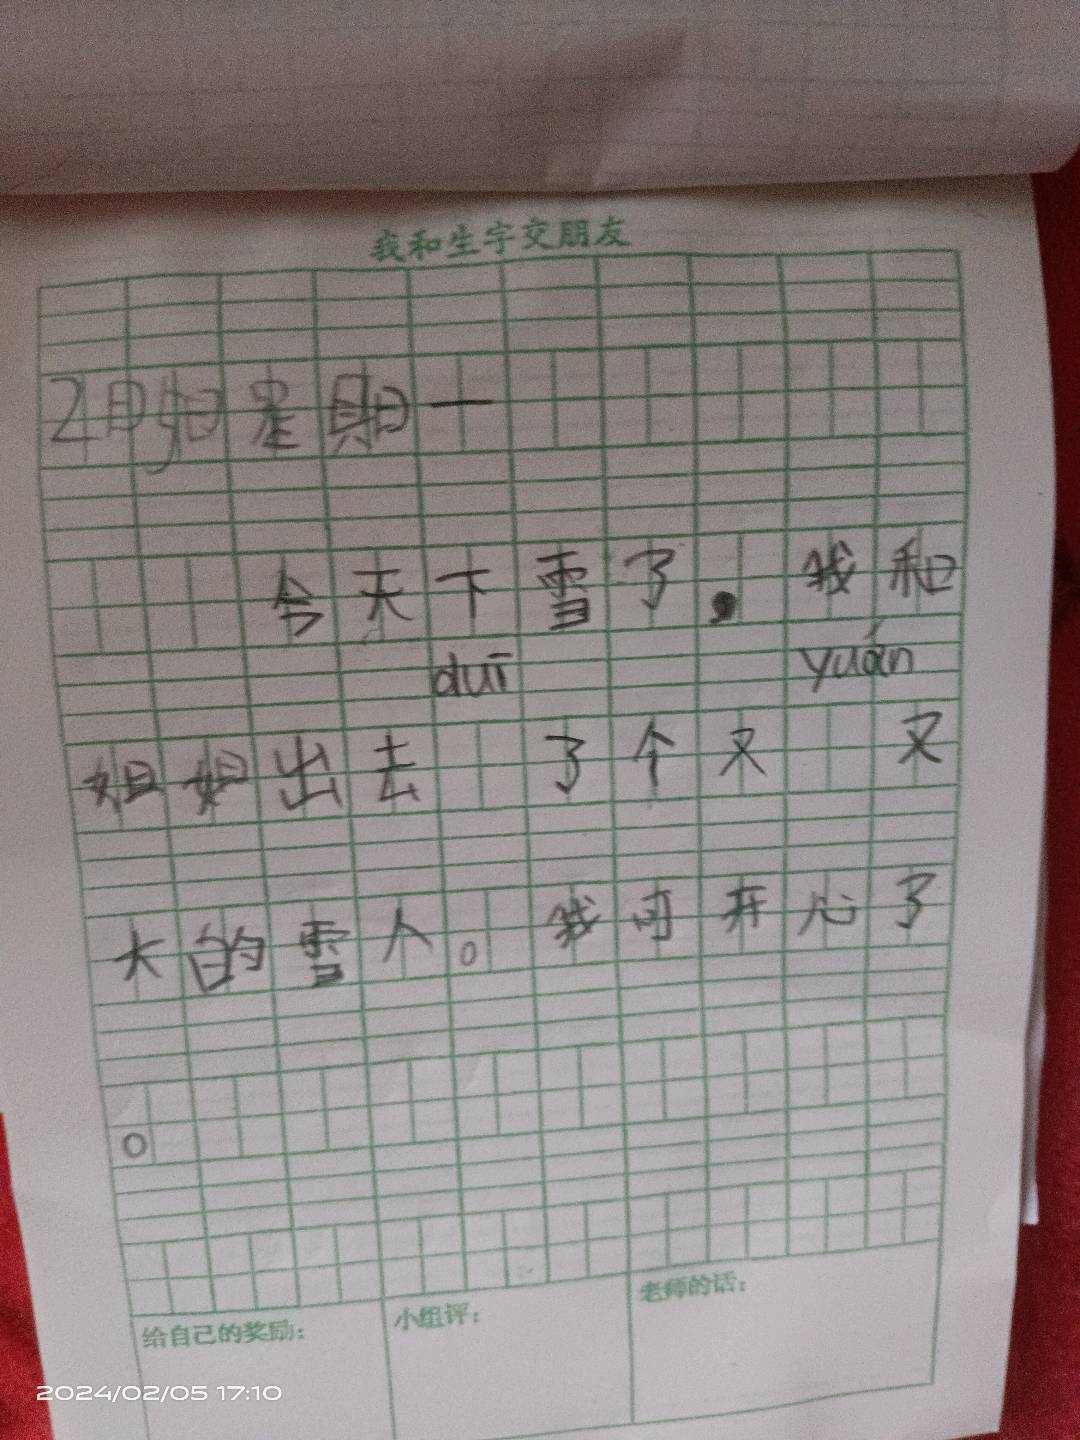 我和生字交朋友
2月5日星期一
今天下雪了，我和
duī yuán
姐姐出去 了个又 又
大的雪人。我可开心了
。
给自己的奖励： 小组评： 老师的话：
2024/02/05 17:10